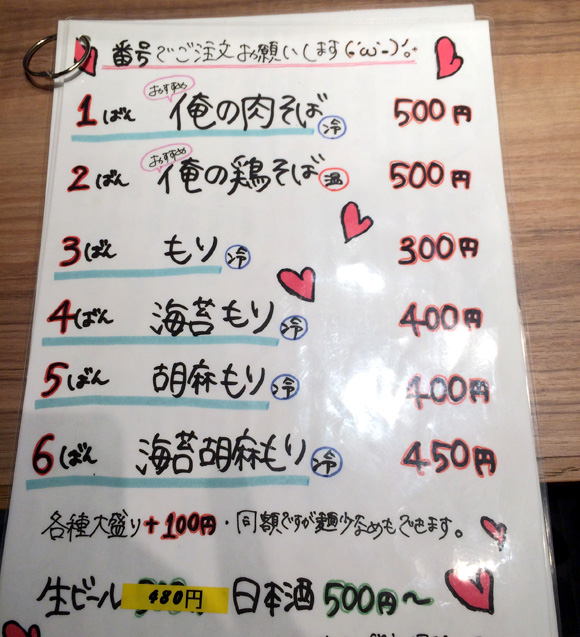 番号でご注文お願いします(´·ω·`)
おすすめ
1ばん 俺の肉そば 冷 500円
おすすめ
2ばん 俺の鶏そば 温 500円
3ばん もり 冷 300円
4ばん 海苔もり 冷 400円
5ばん 胡麻もり 冷 400円
6ばん 海苔胡麻もり 冷 450円
各種大盛り+100円・同額ですが麺少なめもできます。
生ビール 480円 日本酒 500円～